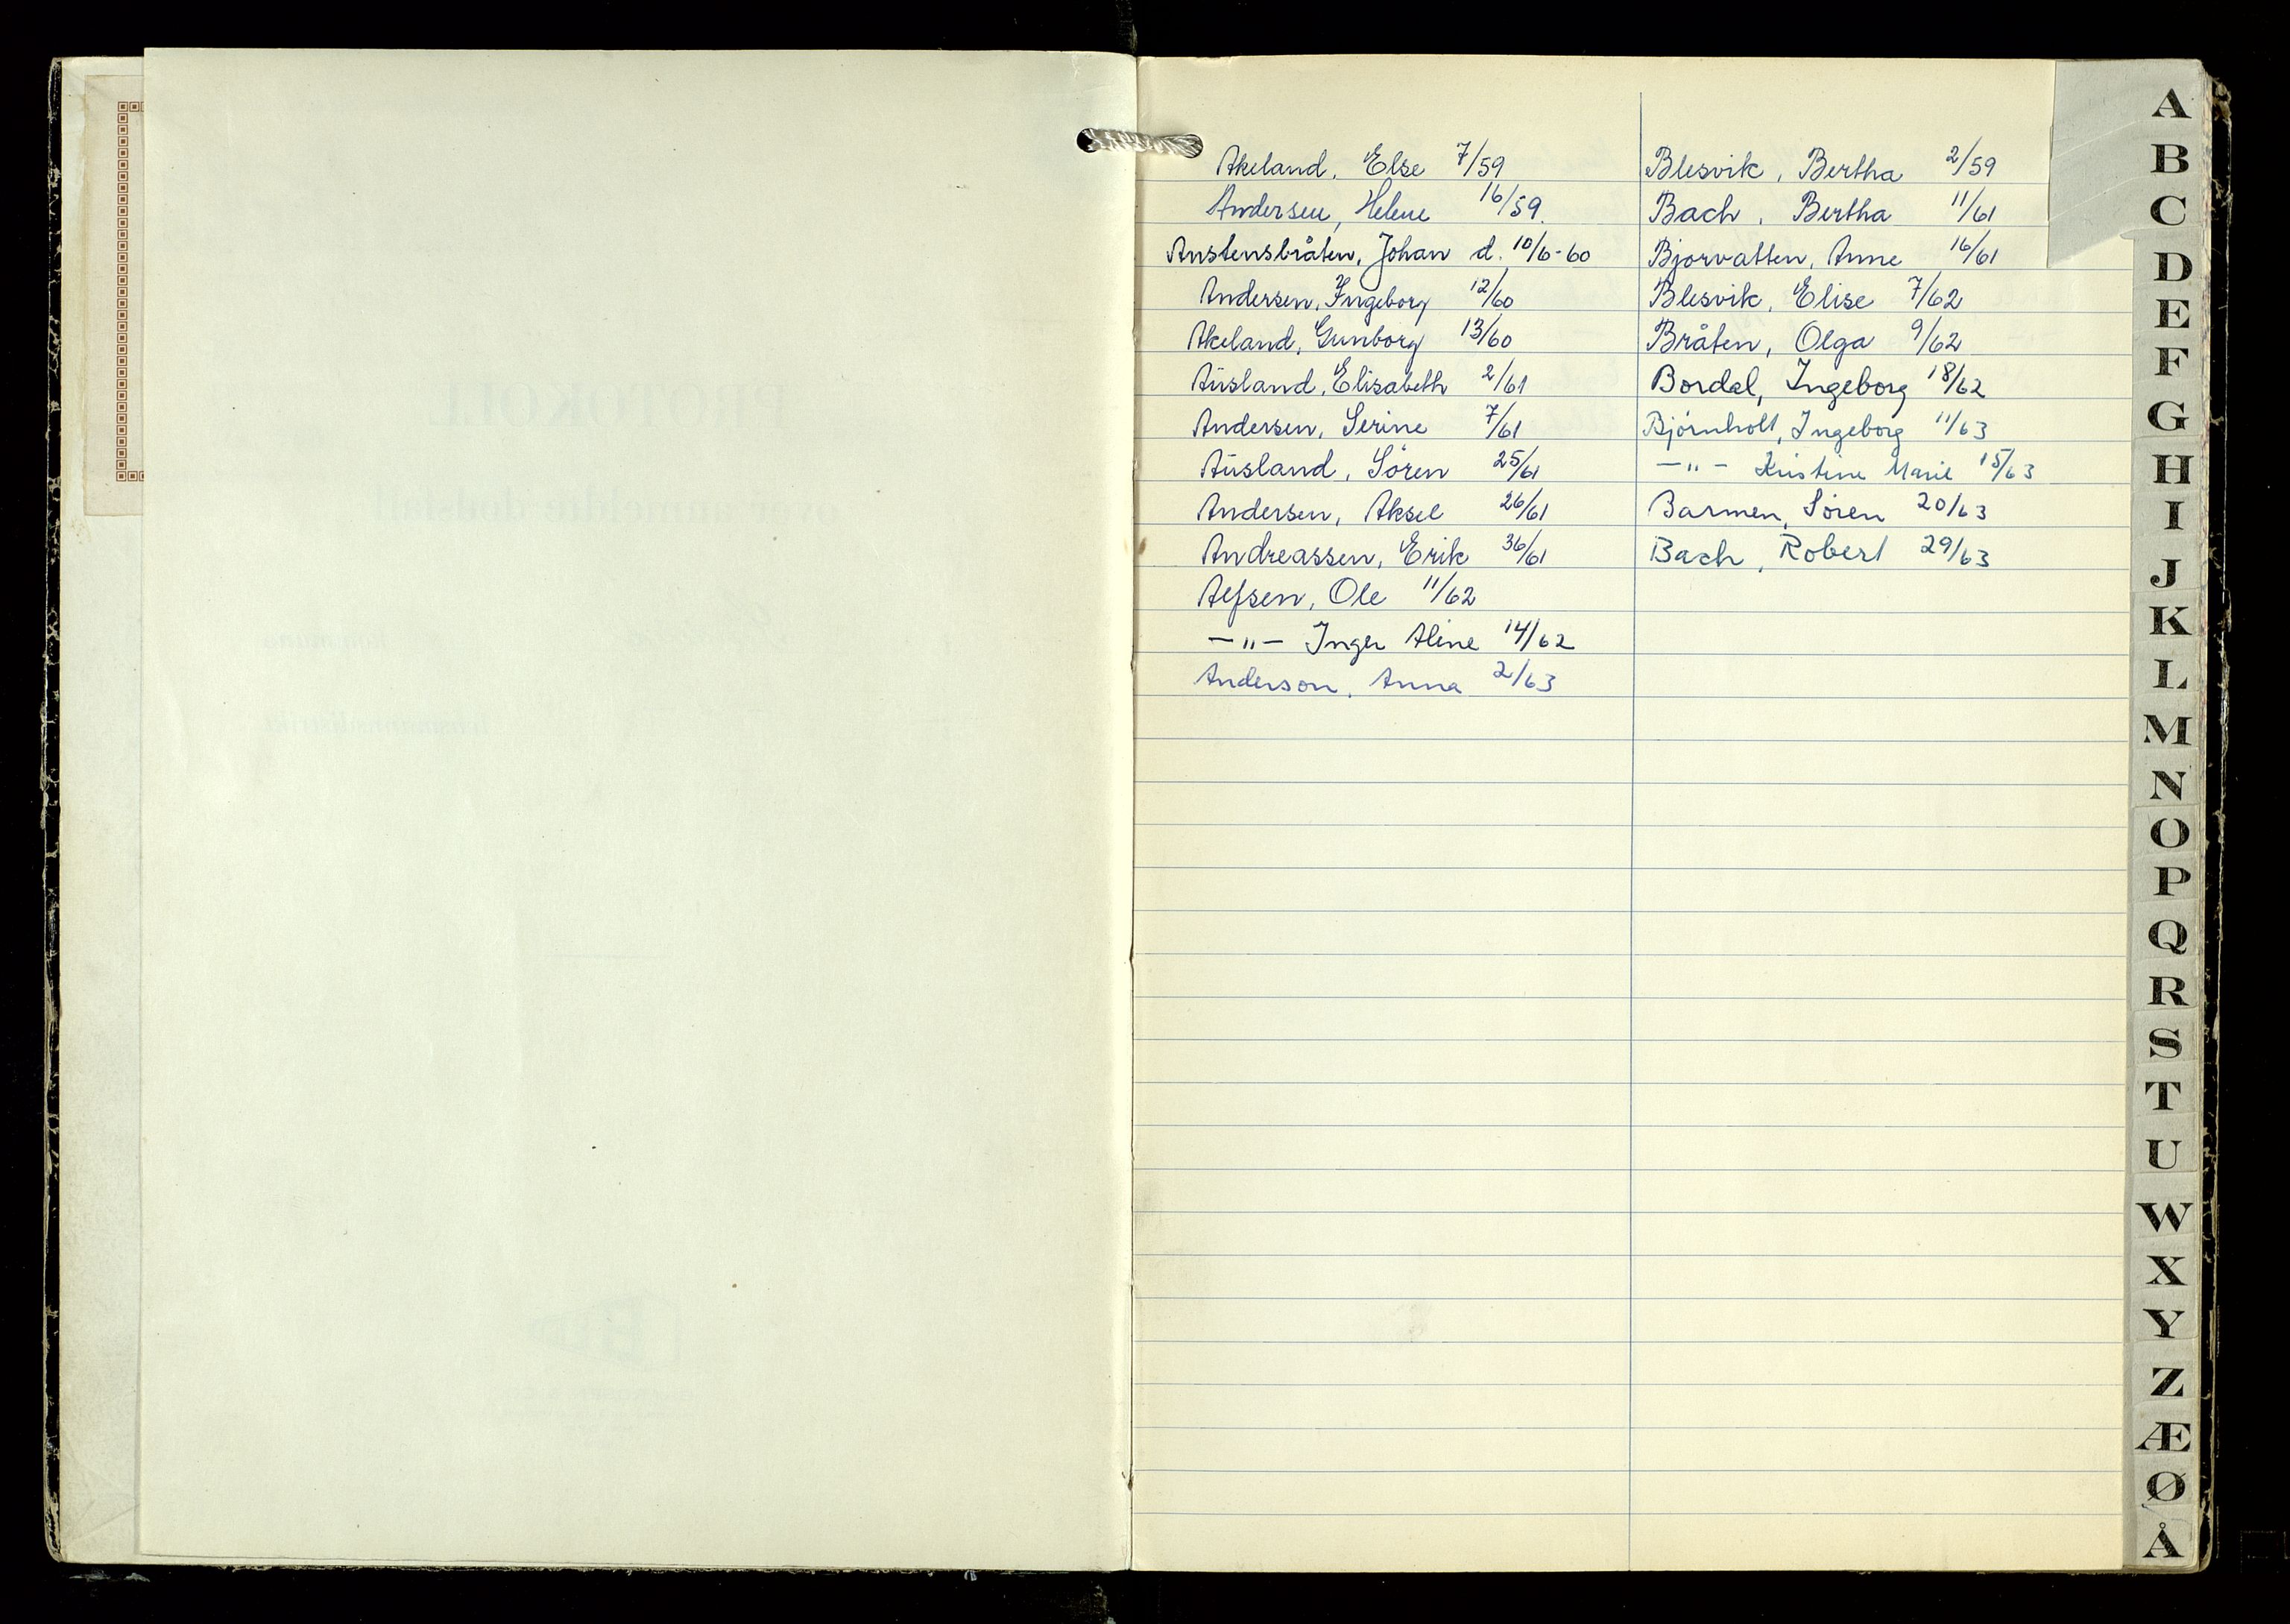 Akeland, Else 7/59
Andersen, Helene 16/59.
Austensbråten, Johan d. 10/6-60
Andersen, Ingeborg 12/60
Akeland, Gunborg 13/60
Aüsland, Elisabeth 2/61
Andersen, Serine 7/61
Aüsland, Sören 25/61
Andersen, Aksel 26/61
Andreassen, Erik 36/61
Alfsen, Ole 11/62
—"— Inger Aline 14/62
Anderson, Anna 2/63
Blesvik, Bertha 2/59
Bach, Bertha 11/61
Bjorvatten, Anne 16/61
Blesvik, Elise 7/62
Bråten, Olga 9/62
Bordal, Ingeborg 18/62
Björnholt, Ingeborg 11/63
—"— Kristine Marie 15/63
Barmen, Sören 20/63
Bach, Robert 29/63
A
B
C
D
E
F
G
H
I
J
K
L
M
N
O
P
Q
R
S
T
U
W
X
Y
Z
Æ
Ø
Å
PROTOKOLL
over anmeldte dødsfall
kommune